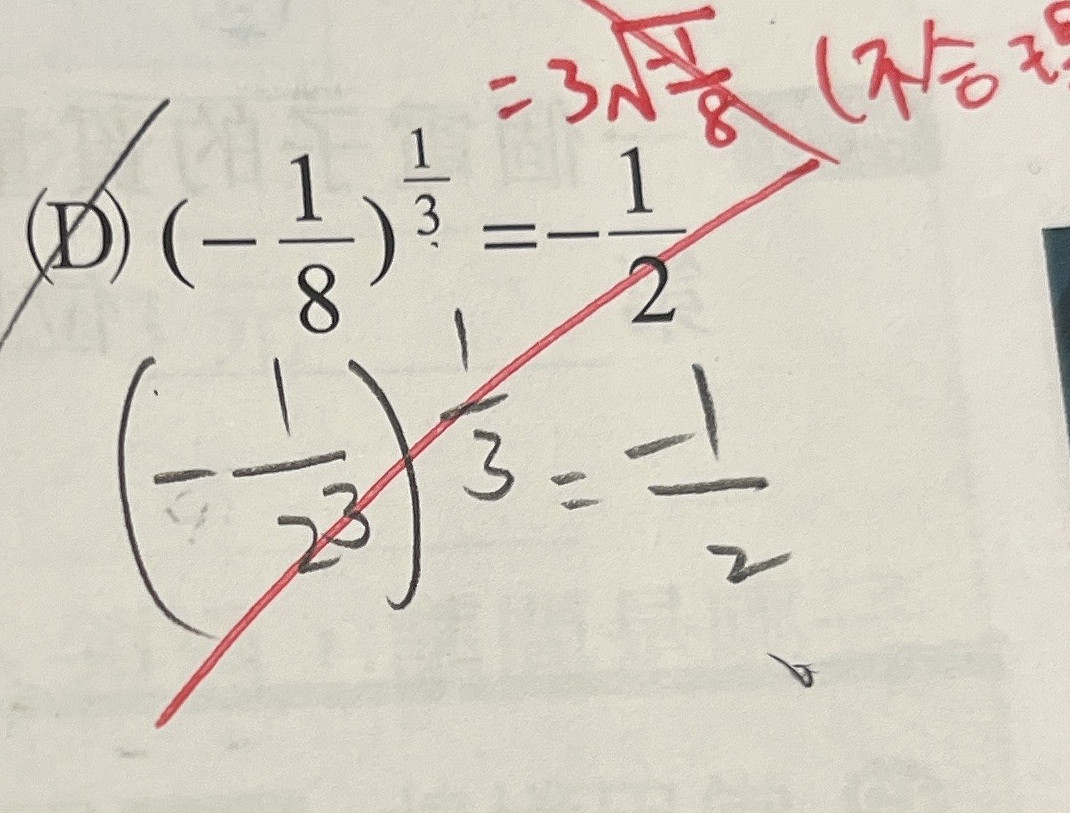 = 3√(-1/8) (不合
(D) (-1/8)^(1/3) = -1/2
(-1/2³)^(1/3) = -1/2